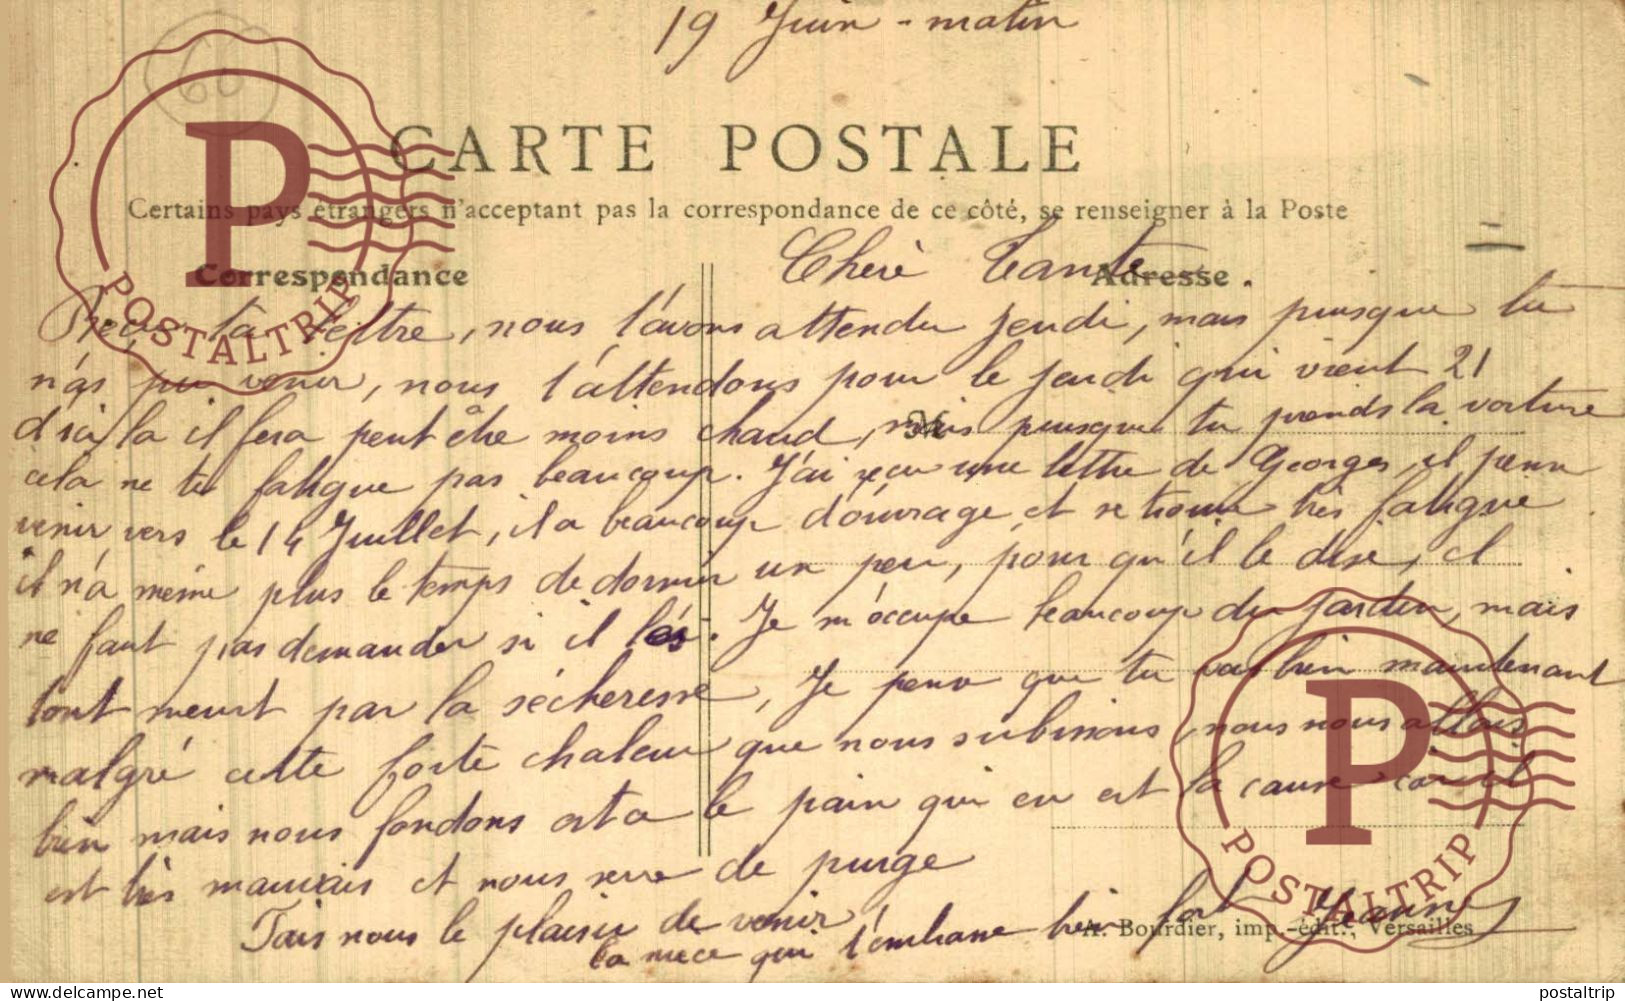 19 Juin - matin
60
CARTE POSTALE
Certains pays étrangers n'acceptant pas la correspondance de ce côté, se renseigner à la Poste
Correspondance
Adresse
Chère Tante.
Reçu ta lettre, nous t'avons attendu jeudi, mais puisque tu
n'as pu venir, nous t'attendons pour le jeudi qui vient 21
d'ici la il fera peut être moins chaud, mais puisque tu prends la voiture
cela ne te fatigue pas beaucoup. J'ai reçu une lettre de Georges, il pense
venir vers le 14 Juillet, il a beaucoup d'ouvrage et se trouve très fatigué
il n'a même plus le temps de dormir un peu, pour qu'il le dise, il
ne faut pas demander si il l'és. Je m'occupe beaucoup du jardin, mais
tout meurt par la sécheresse, Je pense que tu vas bien maintenant
malgré cette forte chaleur que nous subissons, nous nous allons
bien mais nous fondons et a le pain qui en est la cause car il
est très mauvais et nous sere de purge
Fais nous le plaisir de venir
ta niece qui t'embrasse bien fort Jeanne
A. Bourdier, imp.-édit., Versailles
POSTALTRIP
POSTALTRIP
www.delcampe.net
postaltrip